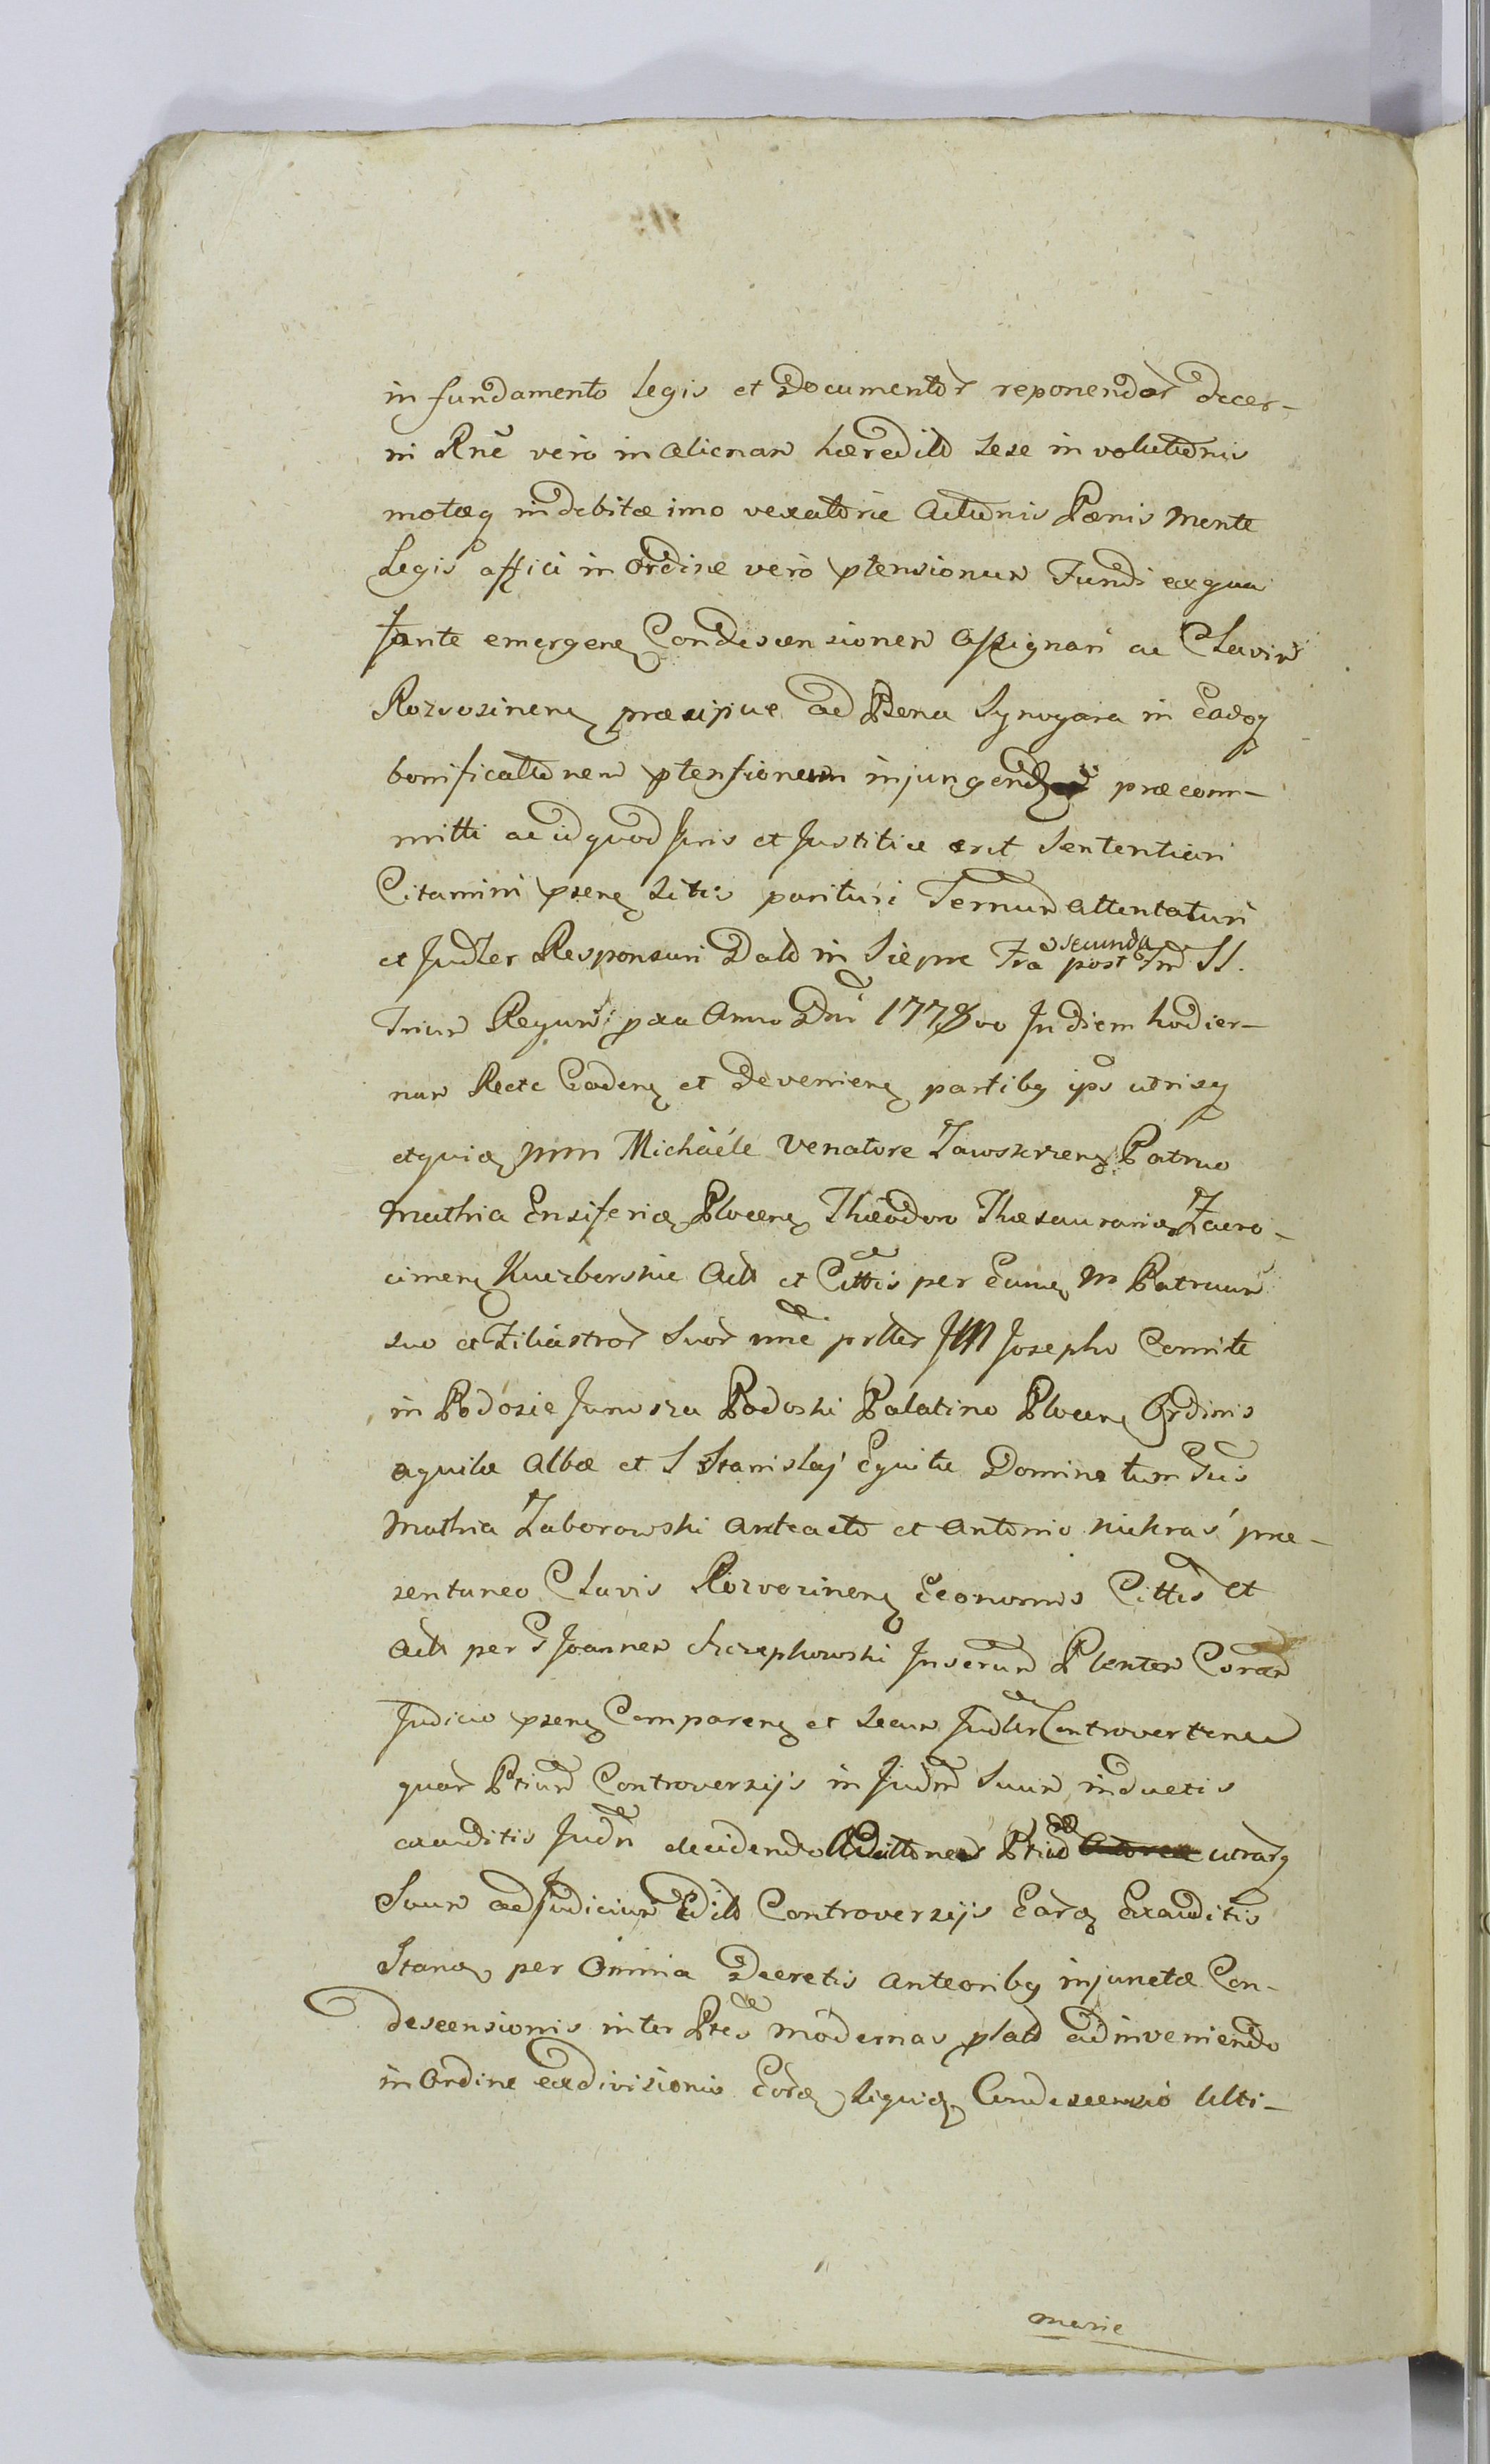 in fundamento Legis et Documentor reponendor decer-
ni Rne vero in alienan hæredild sese involutionis
motæq indebitæ imo vexatoriæ Actionis Pænis mente
Legis affici in Ordine vero ptensionum Fundi ex qua
fonte emergenq Condescensionem assignari ac Clavim
Rozwozinenq præcipue ad Bona Synogora in Eadoq
bonificationem ptensionem injungend præcom-
mitti ac id quod Juris et Justitiæ erit Sententiari
Citamini psenq Litis parituri Ternum attentaturi
et Judler Responsuri Datt in Siepre Fra secunda post Fm SS.
Trium Regum pxa Anno Dni 1778vo In diem hodier-
nam Recte Cadenq et Devenienq partibq ips utrisq
etquiq mm Michaele Venatore Zawskrzenq Patruo
Mathia Ensiferiq Plocenq Theodoro Thesaurariq Zacro-
cimenq Kuczborskie Act et Cittis per Eumq M Patruum
suo et Filiastror Suor nne prtter JM Josepho Comite
in Podosie Junosza Podoski Palatino Plocenq Ordinis
aquilæ Albæ et S Stanislaj Equite Domine tum Gis
Mathia Zaborowski anteacto et Antonio Kukras præ-
zentaneo Clavis Rozwozinenq Economis Cittis et
Act per G Joannem Szczepkowski Juserum Plenten Coram
Judicio psenq Comparenq et secum Judler Controverten
quar Ptium Controversijs in Judm Suum inductis
exauditis Judm decidendo Ptium utrarq
Suum ad Judicium Edill Controversijs Earq Exauditis
Stanq per Omnia Decretis Anteoribq injunctæ Con-
descensionis inter Ptes modernas platt adinveniendo
in Ordine exdivisionis Eorq siquiq Condescensio Ulti-
marie